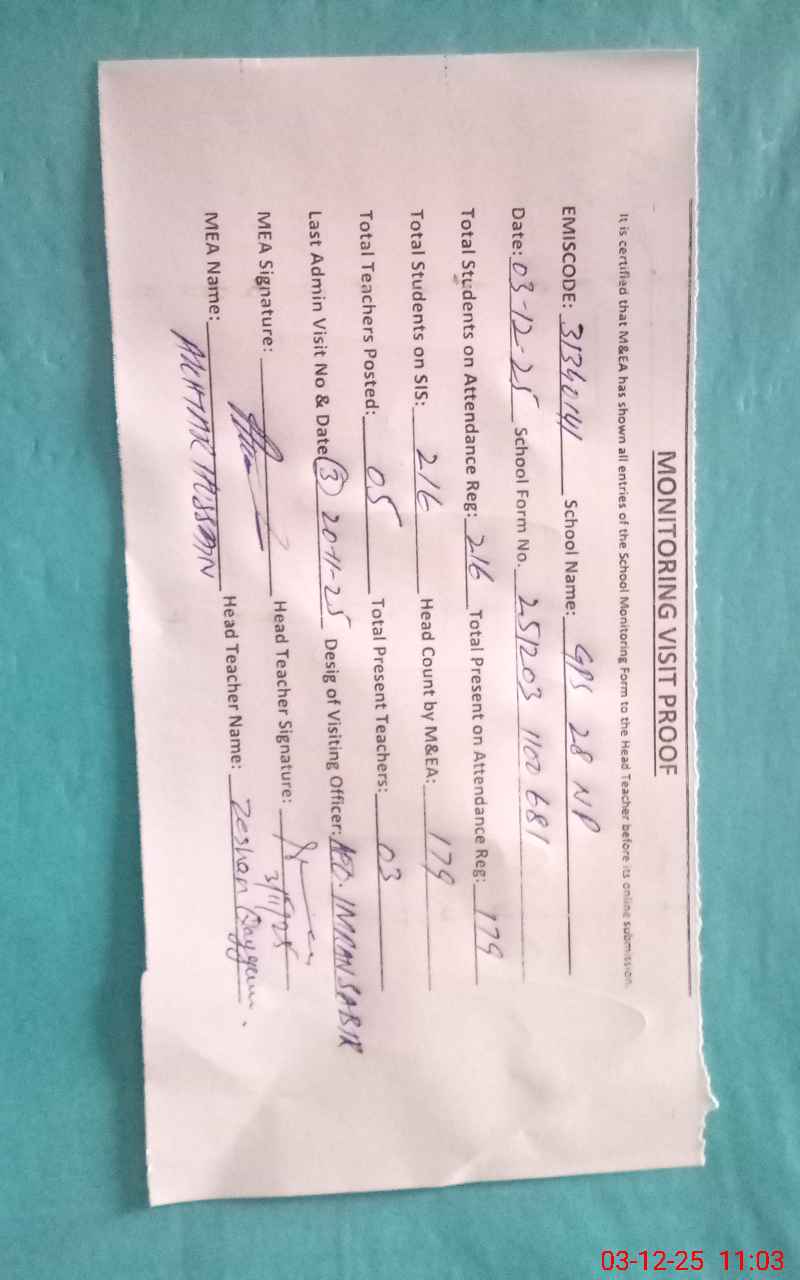 MONITORING VISIT PROOF
It is certified that M&EA has shown all entries of the School Monitoring Form to the Head Teacher before its online submission.
EMISCODE: 31340141 School Name: GPS 28 NP
Date: 03-12-25 School Form No. 251203 1100 681
Total Students on Attendance Reg: 216 Total Present on Attendance Reg: 179
Total Students on SIS: 216 Head Count by M&EA: 179
Total Teachers Posted: 05 Total Present Teachers: 03
Last Admin Visit No & Date (3) 20-11-25 Desig of Visiting Officer: IMRAN SABIR
MEA Signature: Head Teacher Signature:
MEA Name: Head Teacher Name: Zeshan Qayyum.
03-12-25 11:03